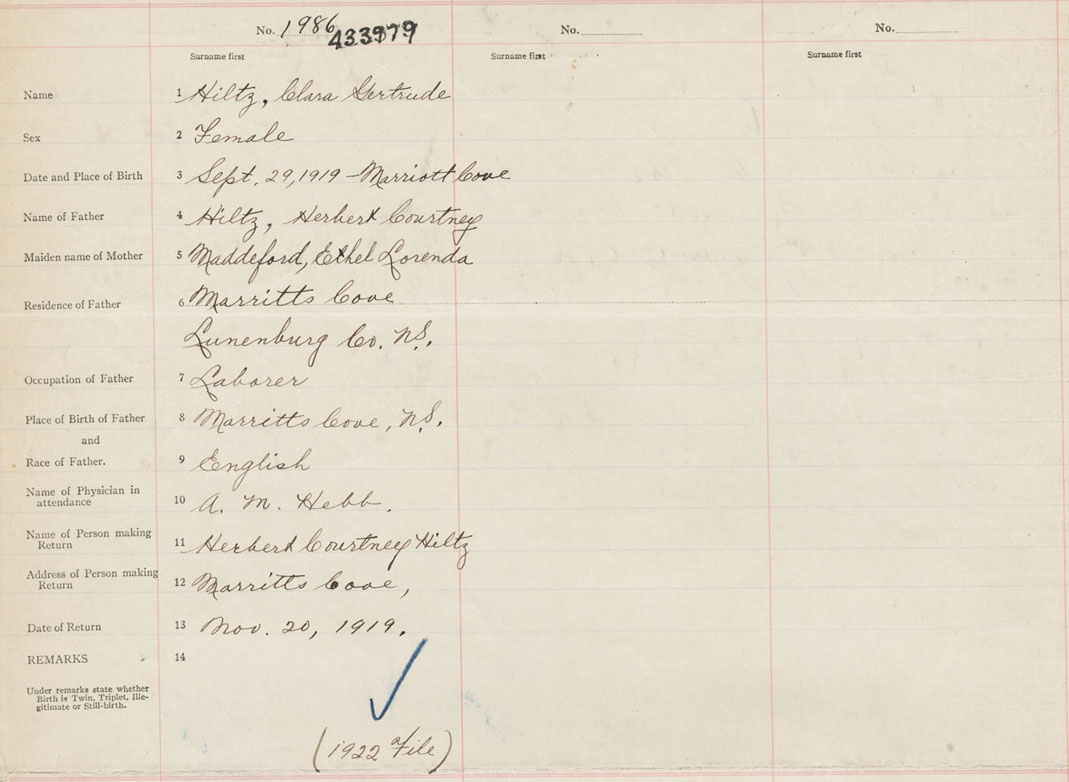 No. 1986 433979 No. No.
Surname first Surname first Surname first
Name 1 Hiltz, Clara Gertrude
Sex 2 Female
Date and Place of Birth 3 Sept. 29, 1919 - Marriott Cove
Name of Father 4 Hiltz, Herbert Courtney
Maiden name of Mother 5 Maddeford, Ethel Lorenda
Residence of Father 6 Marritts Cove
Lunenburg Co. N.S.
Occupation of Father 7 Laborer
Place of Birth of Father 8 Marritts Cove, N.S.
and
Race of Father. 9 English
Name of Physician in
attendance 10 A. M. Hebb.
Name of Person making
Return 11 Herbert Courtney Hiltz
Address of Person making
Return 12 Marritts Cove,
Date of Return 13 Nov. 20, 1919.
REMARKS 14
Under remarks state whether
Birth is Twin, Triplet, Ille-
gitimate or Still-birth.
(1922 File)